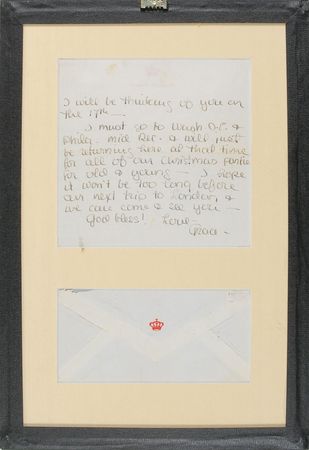 I will be thinking of you on
the 17th —
I must go to Wash D.C. &
Phila. mid Dec. & will just
be returning here at that time
for all of our Christmas parties
for old & young — I hope
it won't be too long before
our next trip to London &
we can come & see you —
God bless! Love —
Grace —